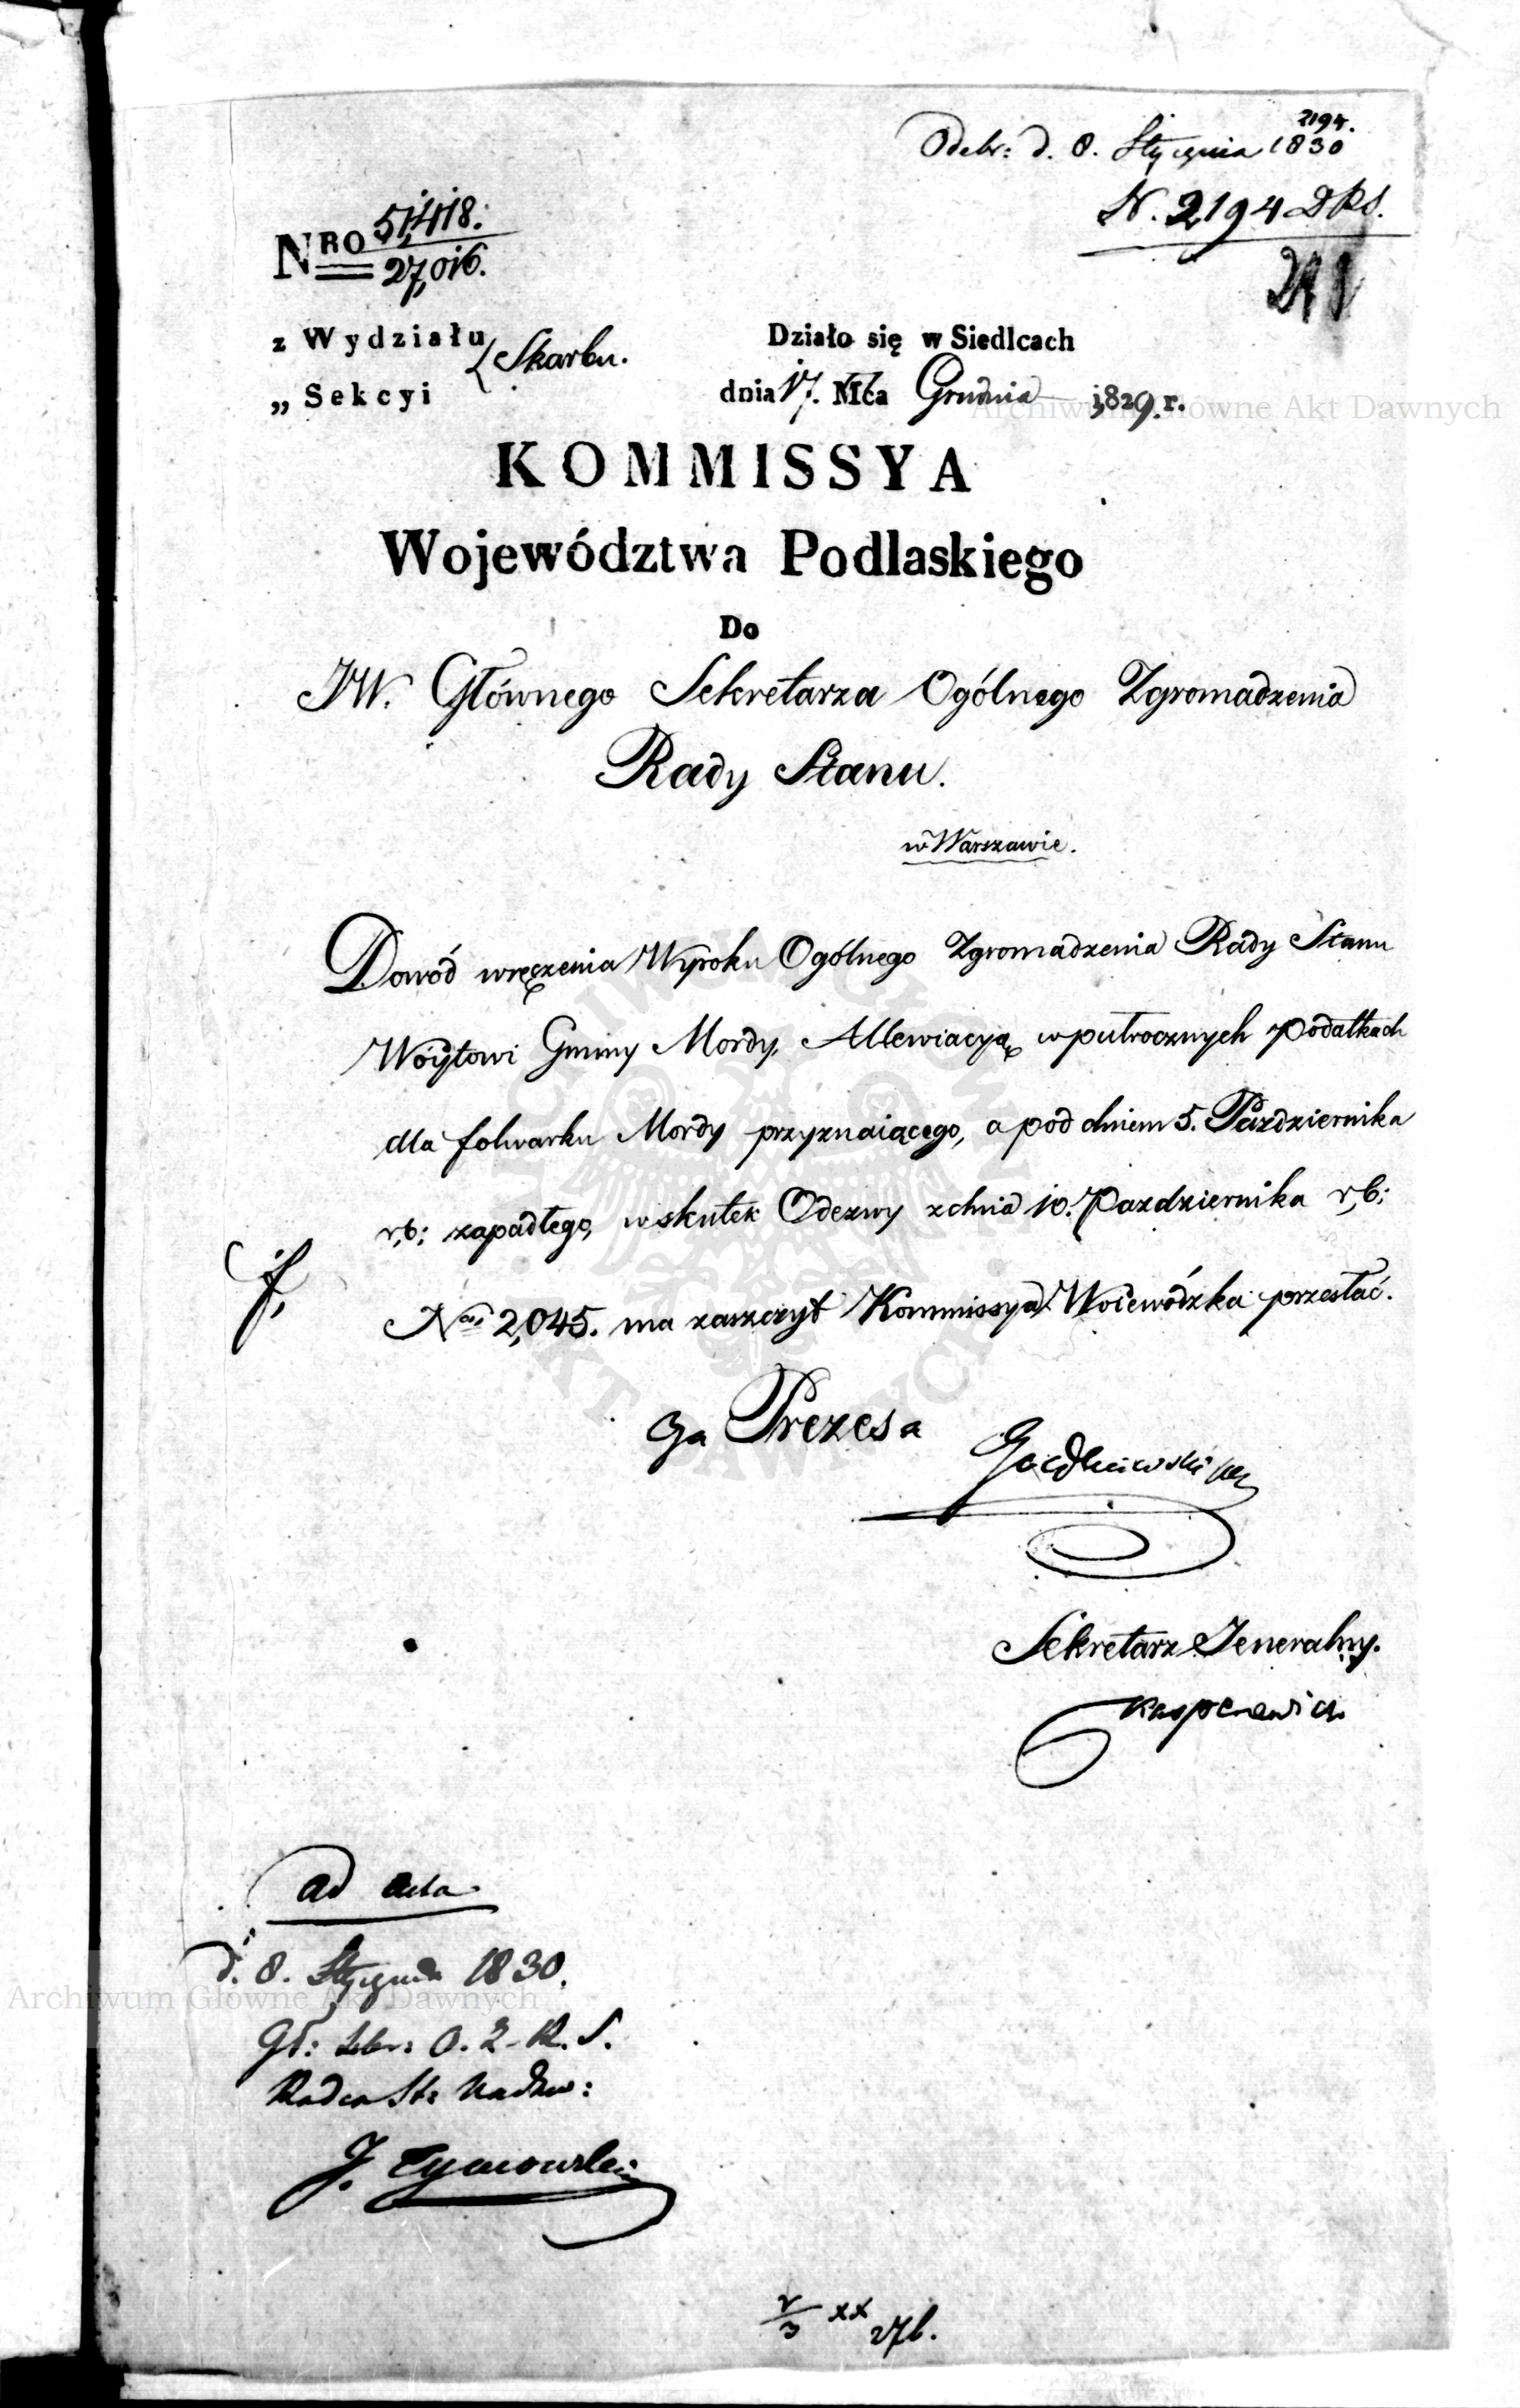 2194.
Odebr: d. 8. Stycznia 1830
N. 2194 DRS.
NRO 51,418.
27,016.
z Wydziału
Skarbu.
„ Sekcyi
Działo się w Siedlcach
dnia 17. Mca Grudnia 1829. r.
KOMMISSYA
Województwa Podlaskiego
Do
JW. Głównego Sekretarza Ogólnego Zgromadzenia
Rady Stanu.
w Warszawie.
Dowód wręczenia Wyroku Ogólnego Zgromadzenia Rady Stanu
Woytowi Gminy Mordy, Allewiacyą w putrocznych Podatkach
dla folwarku Mordy przyznaiącego, a pod dniem 5. Października
r,b: zapadłego, w skutek Odezwy z dnia 10. Pazdziernika r,b:
No 2,045. ma zaszczyt Kommissya Woiewódzka przesłać.
Za Prezesa
Sekretarz Jeneralny.
ad acta
d. 8. Stycznia 1830.
Gł: Sekr: O. Z. R. S.
Radca St: Nadzw:
J. Tymowski
Archiwum Główne Akt Dawnych
Archiwum Główne Akt Dawnych
ARCHIWUM GŁÓWNE AKT DAWNYCH